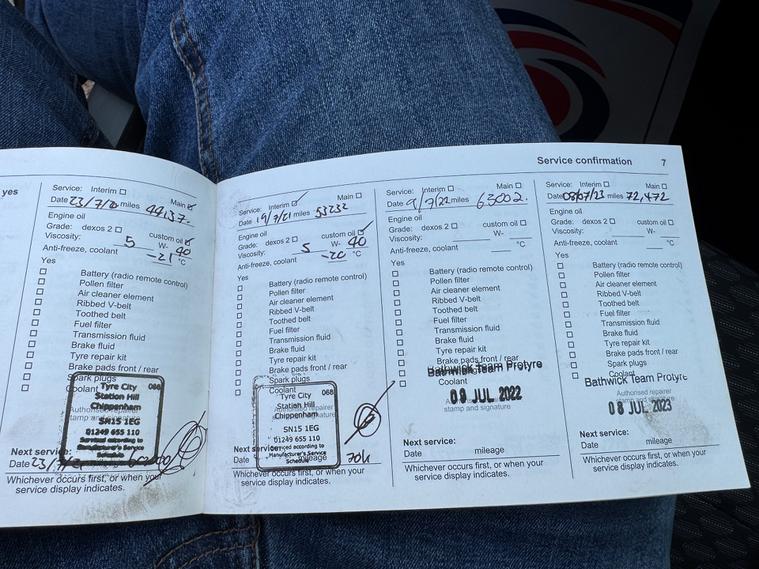 Service confirmation 7
yes
Service: Interim Main
Date 23/7/20 miles 44137.
Engine oil
Grade: dexos 2 custom oil
Viscosity: 5 W- 40
Anti-freeze, coolant -21 °C
Yes
Battery (radio remote control)
Pollen filter
Air cleaner element
Ribbed V-belt
Toothed belt
Fuel filter
Transmission fluid
Brake fluid
Tyre repair kit
Brake pads front / rear
Spark plugs
Coolant
Tyre City 068
Station Hill
Chippenham
SN15 1EG
01249 655 110
Serviced according to
Manufacturer's Service
Schedule
Next service:
Date 23/7/21
Whichever occurs first, or when your
service display indicates.
Service: Interim Main
Date 19/7/21 miles 53232
Engine oil
Grade: dexos 2 custom oil
Viscosity: 5 W- 40
Anti-freeze, coolant -20 °C
Yes
Battery (radio remote control)
Pollen filter
Air cleaner element
Ribbed V-belt
Toothed belt
Fuel filter
Transmission fluid
Brake fluid
Tyre repair kit
Brake pads front / rear
Spark plugs
Coolant
Tyre City 068
Station Hill
Chippenham
SN15 1EG
01249 655 110
Serviced according to
Manufacturer's Service
Schedule
Next service:
Date mileage 70k
Whichever occurs first, or when your
service display indicates.
Service: Interim Main
Date 9/7/22 miles 63002.
Engine oil
Grade: dexos 2 custom oil
Viscosity: W-
Anti-freeze, coolant °C
Yes
Battery (radio remote control)
Pollen filter
Air cleaner element
Ribbed V-belt
Toothed belt
Fuel filter
Transmission fluid
Brake fluid
Tyre repair kit
Brake pads front / rear
Bathwick Team Protyre
Coolant
09 JUL 2022
Authorised repairer
stamp and signature
Next service:
Date mileage
Whichever occurs first, or when your
service display indicates.
Service: Interim Main
Date 08/07/23 miles 72,472
Engine oil
Grade: dexos 2 custom oil
Viscosity: W-
Anti-freeze, coolant °C
Yes
Battery (radio remote control)
Pollen filter
Air cleaner element
Ribbed V-belt
Toothed belt
Fuel filter
Transmission fluid
Brake fluid
Tyre repair kit
Brake pads front / rear
Spark plugs
Coolant
Bathwick Team Protyre
Authorised repairer
08 JUL 2023
stamp and signature
Next service:
Date mileage
Whichever occurs first, or when your
service display indicates.